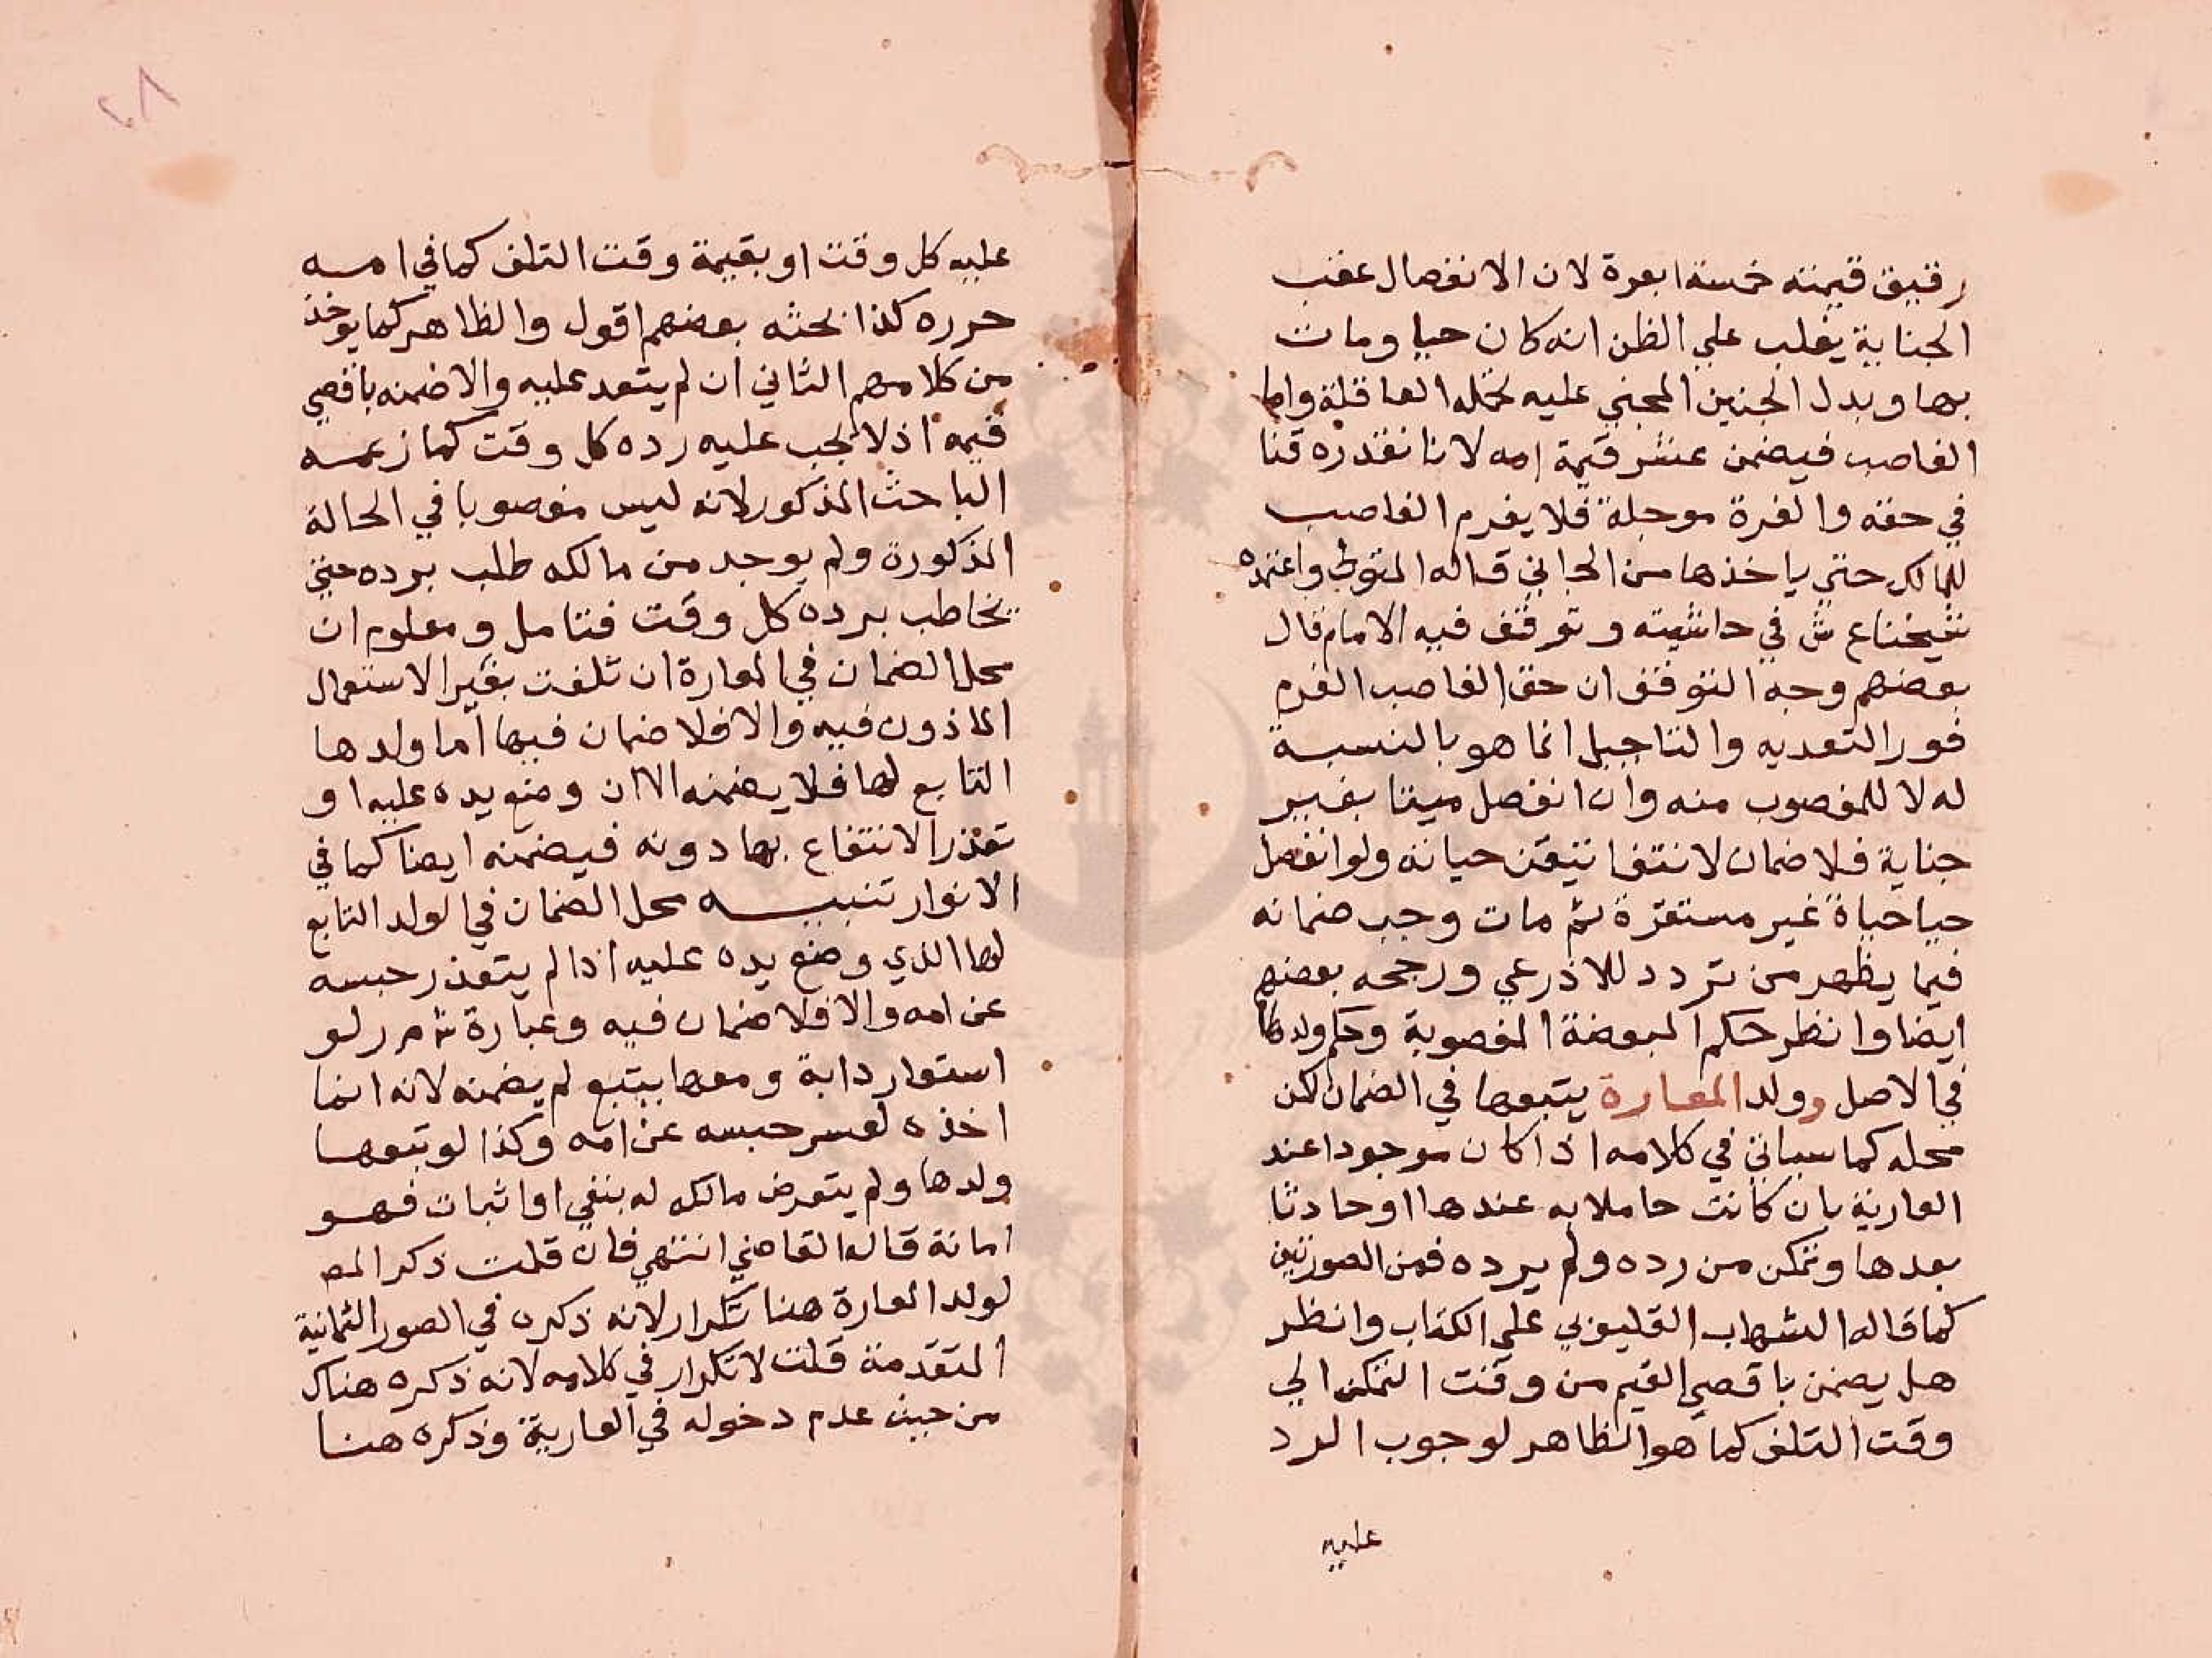 رقيق قيمته خمسة ابعرة لان الانفصال عقب
الجناية يغلب علي الظن انه كان حيا ومات
بها وبدل الجنين المجني عليه تحمله العاقلة واما
الغاصب فيضمن عشر قيمة امه لانا نقدره قنا
في حقه والغرة موجلة فلا يغرم الغاصب
للمالك حتي ياخذها من الجاني قاله المتولي واعتمده
شيخنا ع ش في حاشيته وتوقف فيه الامام قال
بعضهم وجه التوقف ان حق الغاصب الغرم
فورا لتعديه والتاجيل انما هو بالنسبة
له لا للمغصوب منه وان انفصل ميتا بغير
جناية فلا ضمان لانتفا تيقن حياته ولو انفصل
حيا حياة غير مستقرة ثم مات وجب ضمانه
فيما يظهر من تردد للاذرعي ورجحه بعضهم
ايضا وانظر حكم المبعضة المغصوبة وحكم ولدها
في الاصل وولد المعارة يتبعها في الضمان لكن
محله كما سياتي في كلامه اذا كان موجودا عند
العارية بان كانت حاملا به عندها او حادثا
بعدها وتمكن من رده ولم يرده فمن الصورتين
كما قاله الشهاب القليوبي علي الكتاب وانظر
هل يضمن باقصي القيم من وقت التمكن الي
وقت التلف كما هو الظاهر لوجوب الرد
عليه
٢٨
عليه كل وقت او بقيمة وقت التلف كما في امه
حرره كذا بحثه بعضهم اقول والظاهر كما يوخذ
من كلامهم الثاني ان لم يتعد عليه والا ضمنه باقصي
قيمه اذ لا يجب عليه رده كل وقت كما زعمه
الباحث المذكور لانه ليس مغصوبا في الحالة
المذكورة ولم يوجد من مالكه طلب برده حتي
يخاطب برده كل وقت فتامل ومعلوم ان
محل الضمان في المعارة ان تلفت بغير الاستعمال
الماذون فيه والا فلا ضمان فيها اما ولدها
التابع لها فلا يضمنه الا ان وضع يده عليه او
تعذر الانتفاع بها دونه فيضمنه ايضا كما في
الانوار تنبيه محل الضمان في الولد التابع
لها الذي وضع يده عليه اذا لم يتعذر حبسه
عن امه والا فلا ضمان فيه وعبارة ش م ر لو
استعار دابة ومعها بتبع لم يضمنه لانه انما
اخذه لعسر حبسه عن امه وكذا لو تبعها
ولدها ولم يتعرض مالكه له بنفي او اثبات فهو
امانة قاله القاضي انتهي فان قلت ذكر المص
لولد المعارة هنا تكرار لانه ذكره في الصور الثمانية
المتقدمة قلت لا تكرار في كلامه لانه ذكره هناك
من حيث عدم دخوله في العارية وذكره هنا